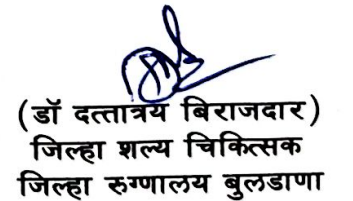 (डॉ दत्तात्रय बिराजदार)
जिल्हा शल्य चिकित्सक
जिल्हा रुग्णालय बुलडाणा